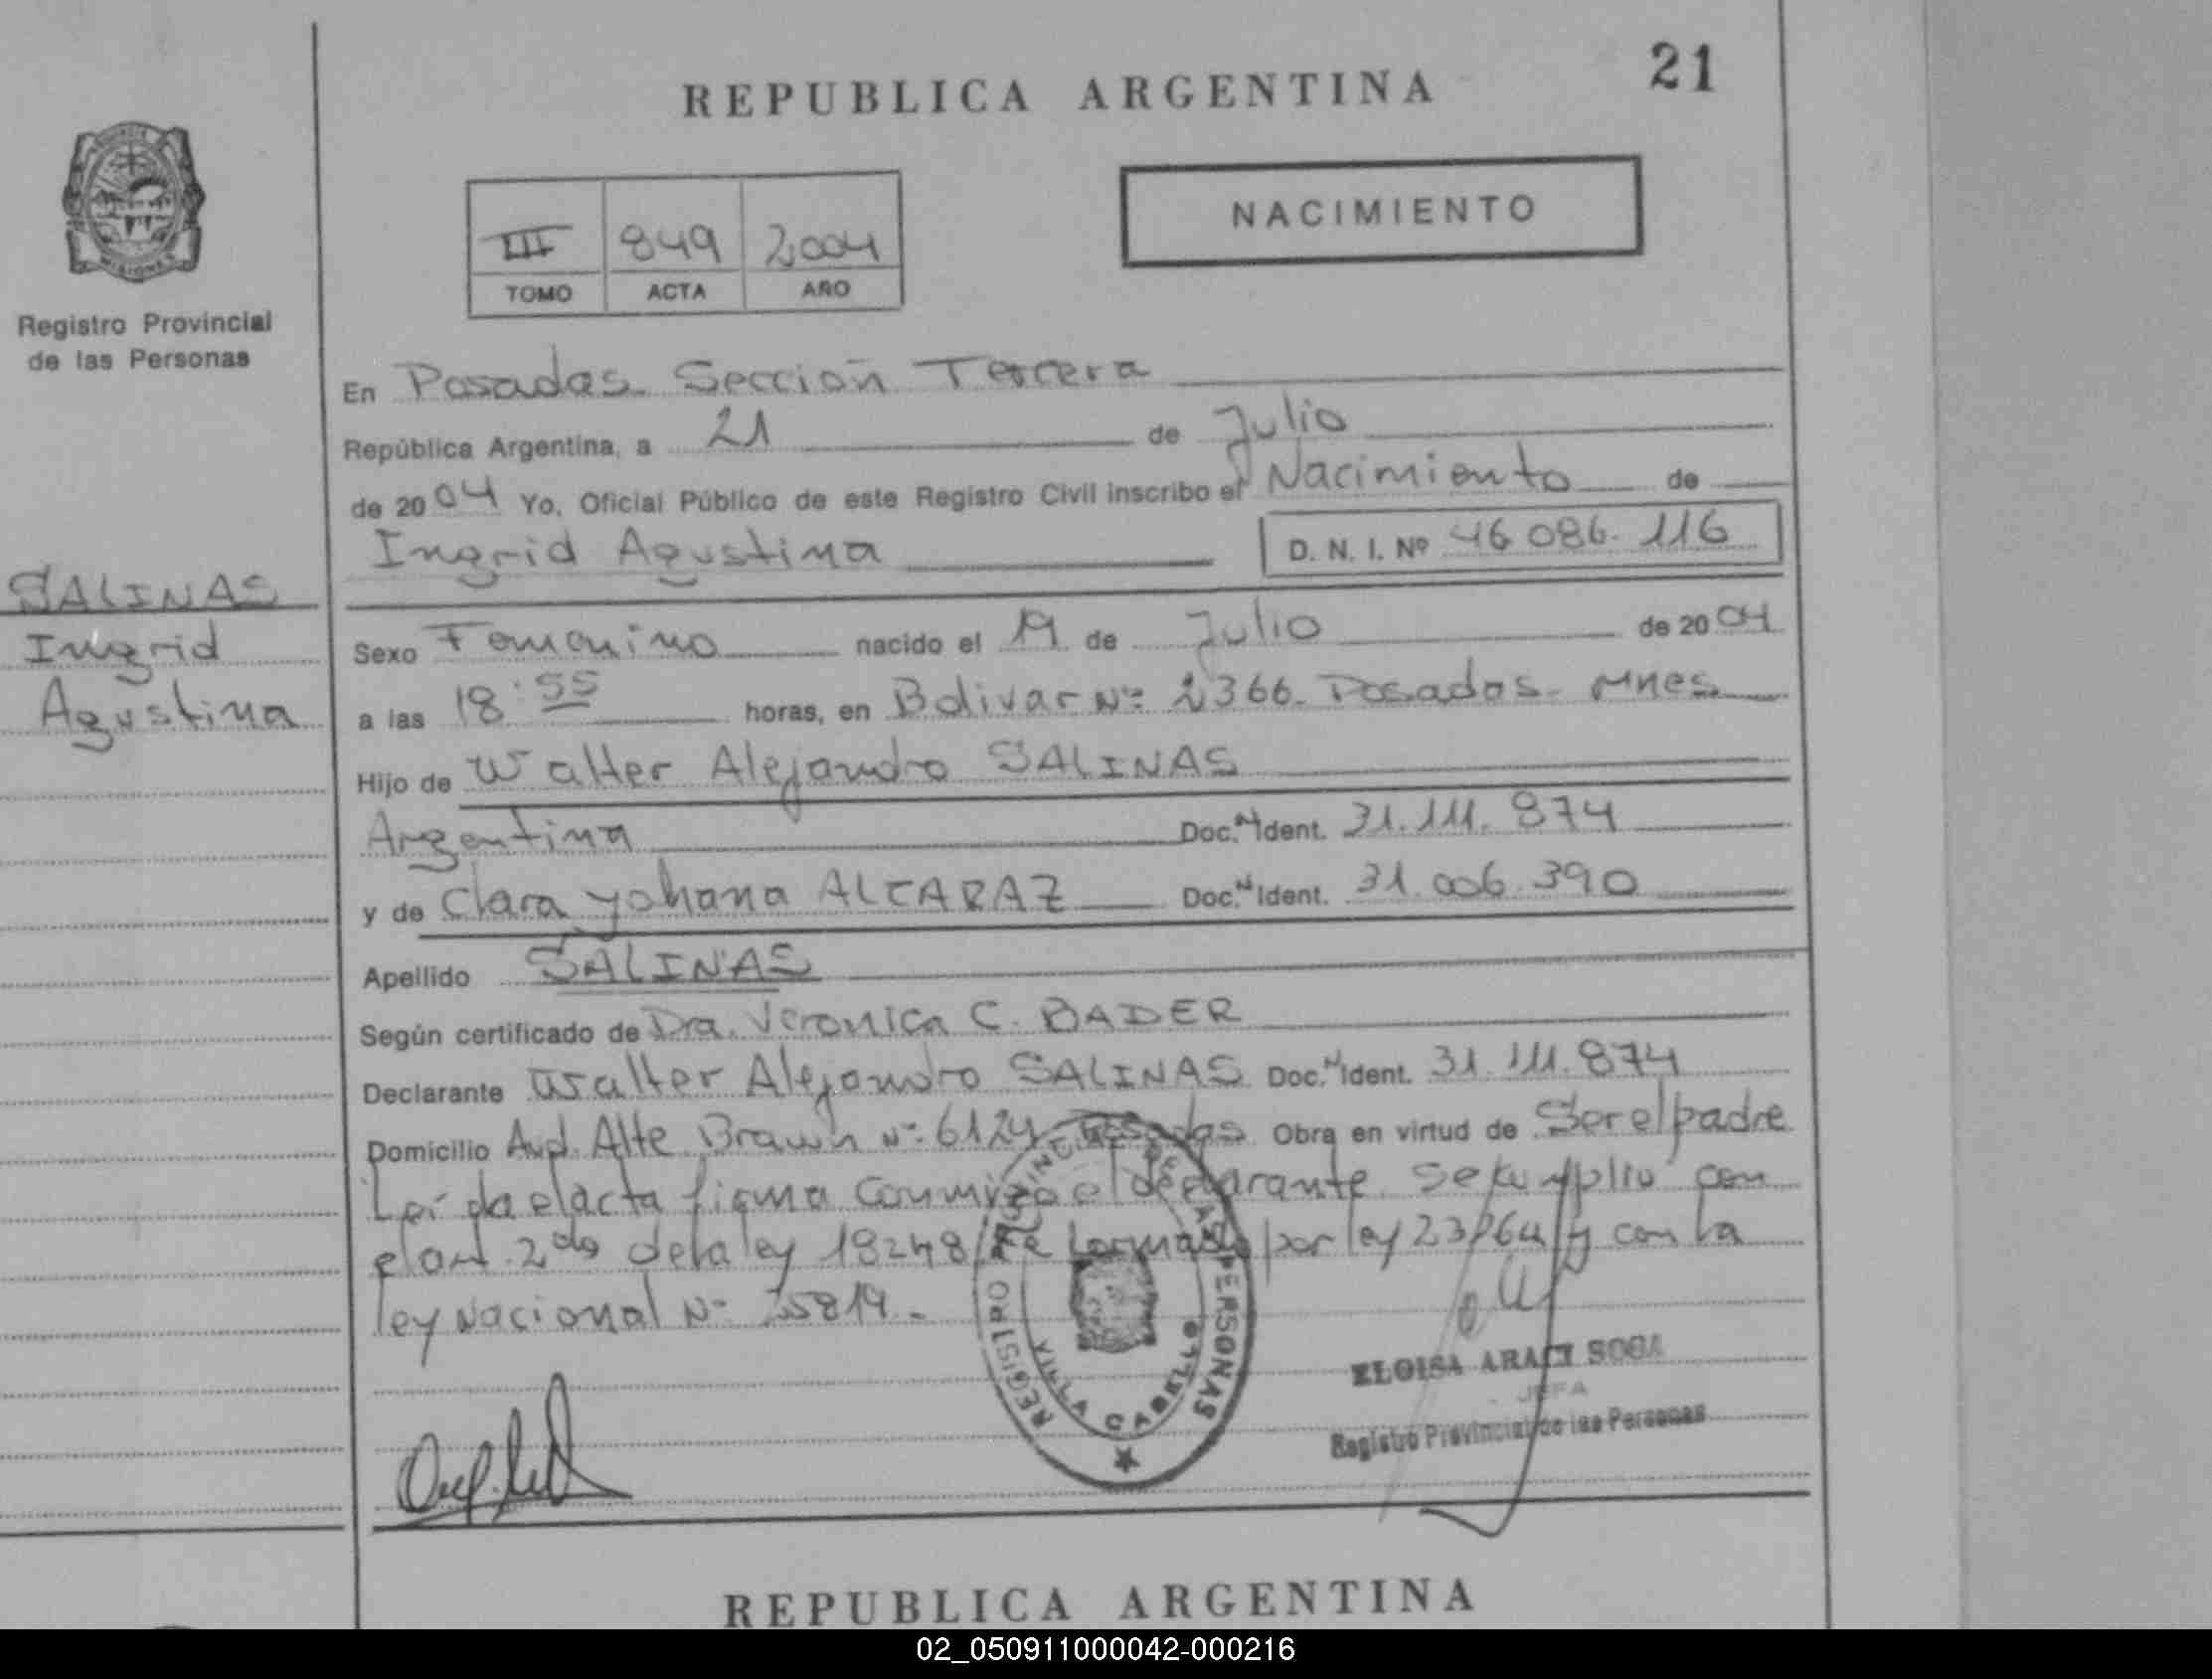 REPUBLICA ARGENTINA
21
MISIONES
Registro Provincial
de las Personas
III 849 2004
TOMO ACTA AÑO
NACIMIENTO
En Posadas Sección Tercera
República Argentina, a 21 de Julio
de 2004 Yo, Oficial Público de este Registro Civil inscribo el Nacimiento de
Ingrid Agustina D. N. I. Nº 46 086. 116
SALINAS
Ingrid
Agustina
Sexo Femenino nacido el 19 de Julio de 2004
a las 18:55 horas, en Bolivar Nº 2366. Posadas. Mnes
Hijo de Walter Alejandro SALINAS
Argentina Doc. N Ident. 31.111.874
y de Clara Yohana ALCARAZ Doc. N Ident. 31.006.390
Apellido SALINAS
Según certificado de Dra. Veronica C. BADER
Declarante Walter Alejandro SALINAS Doc. N Ident. 31.111.874
Domicilio Avd. Alte. Brown Nº 6124 Posadas Obra en virtud de Ser el padre
Leída el acta firma conmigo el declarante. Se cumplio con
el art. 2do de la ley 18248 por ley 23264 y con la
ley Nacional Nº 25819.-
REGISTRO PROVINCIAL DE LAS PERSONAS
VILLA CABELLO
ELOISA ARACI SOSA
JEFA
Registro Provincial de las Personas
REPUBLICA ARGENTINA
02_050911000042-000216